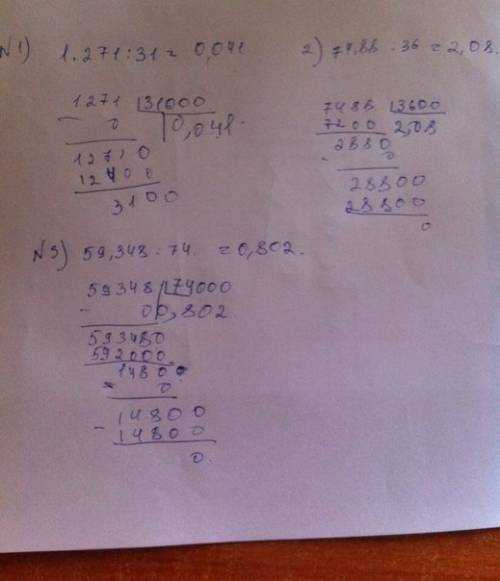 N1) 1.271:31 = 0,041
1271 31000
- 0 0,041.
12710
12400
3100
2) 74,88 : 36 = 2,08.
7488 3600
7200 2,08
2880
- 0
28800
28800
0
N3) 59,348 : 74. = 0,802.
59348 74000
- 00,802
593480
592000
14800
- 0
14800
- 14800
0.